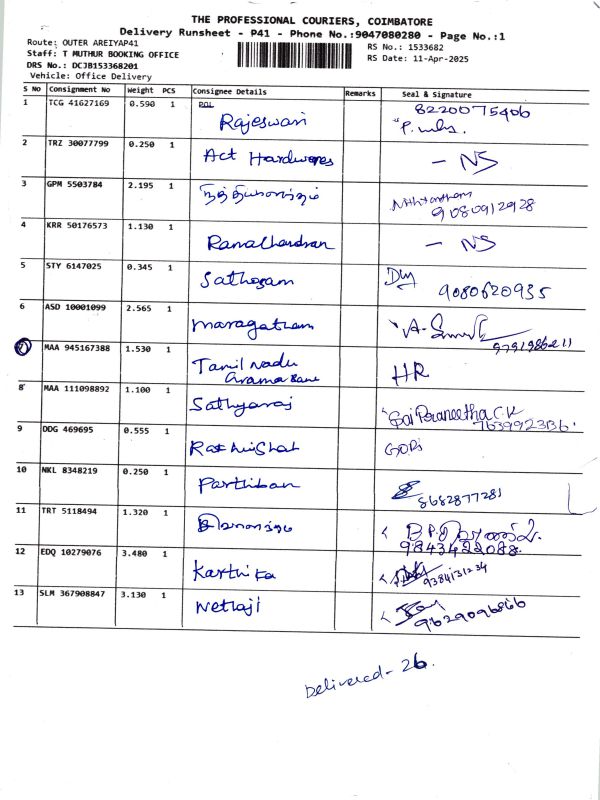 THE PROFESSIONAL COURIERS, COIMBATORE
Delivery Runsheet - P41 - Phone No.:9047080280 - Page No.:1
Route: OUTER AREIYAP41
RS No.: 1533682
Staff: T MUTHUR BOOKING OFFICE
RS Date: 11-Apr-2025
DRS No.: DCJB153368201
Vehicle: Office Delivery
S No Consignment No Weight PCS Consignee Details Remarks Seal & Signature
1 TCG 41627169 0.590 1 Rajeswari 8220075406
2 TRZ 30077799 0.250 1 Act Hardwares - NS
3 GPM 5503784 2.195 1 நித்தியானந்தம் 9080912928
4 KRR 50176573 1.130 1 Ramachandran - NS
5 STY 6147025 0.345 1 9080620935
6 ASD 10001099 2.565 1 maragatham
7 MAA 945167388 1.530 1 Tamil nadu HR
8 MAA 111098892 1.100 1 Sathyaraj Sai Praneetha C.K
9 DDG 469695 0.555 1 GOPi
10 NKL 8348219 0.250 1 Parthiban 8682877281
11 TRT 5118494 1.320 1
9843422088
12 EDQ 10279076 3.480 1 Karthika 9384131234
13 SLM 367908847 3.130 1 Nethaji 9629096866
Delivered - 26.